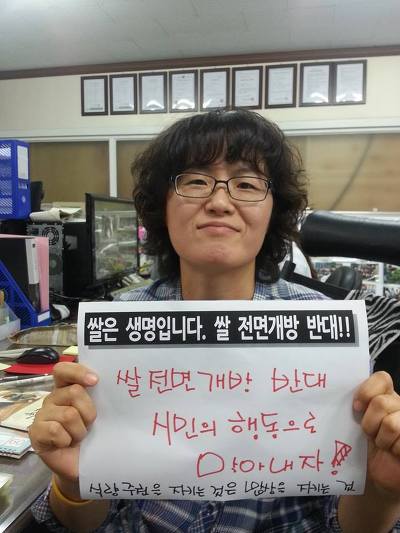 쌀은 생명입니다. 쌀 전면개방 반대!!
쌀 전면개방 반대
시민의 행동으로
막아내자!
식량주권을 지키는 것은 밥상을 지키는 것